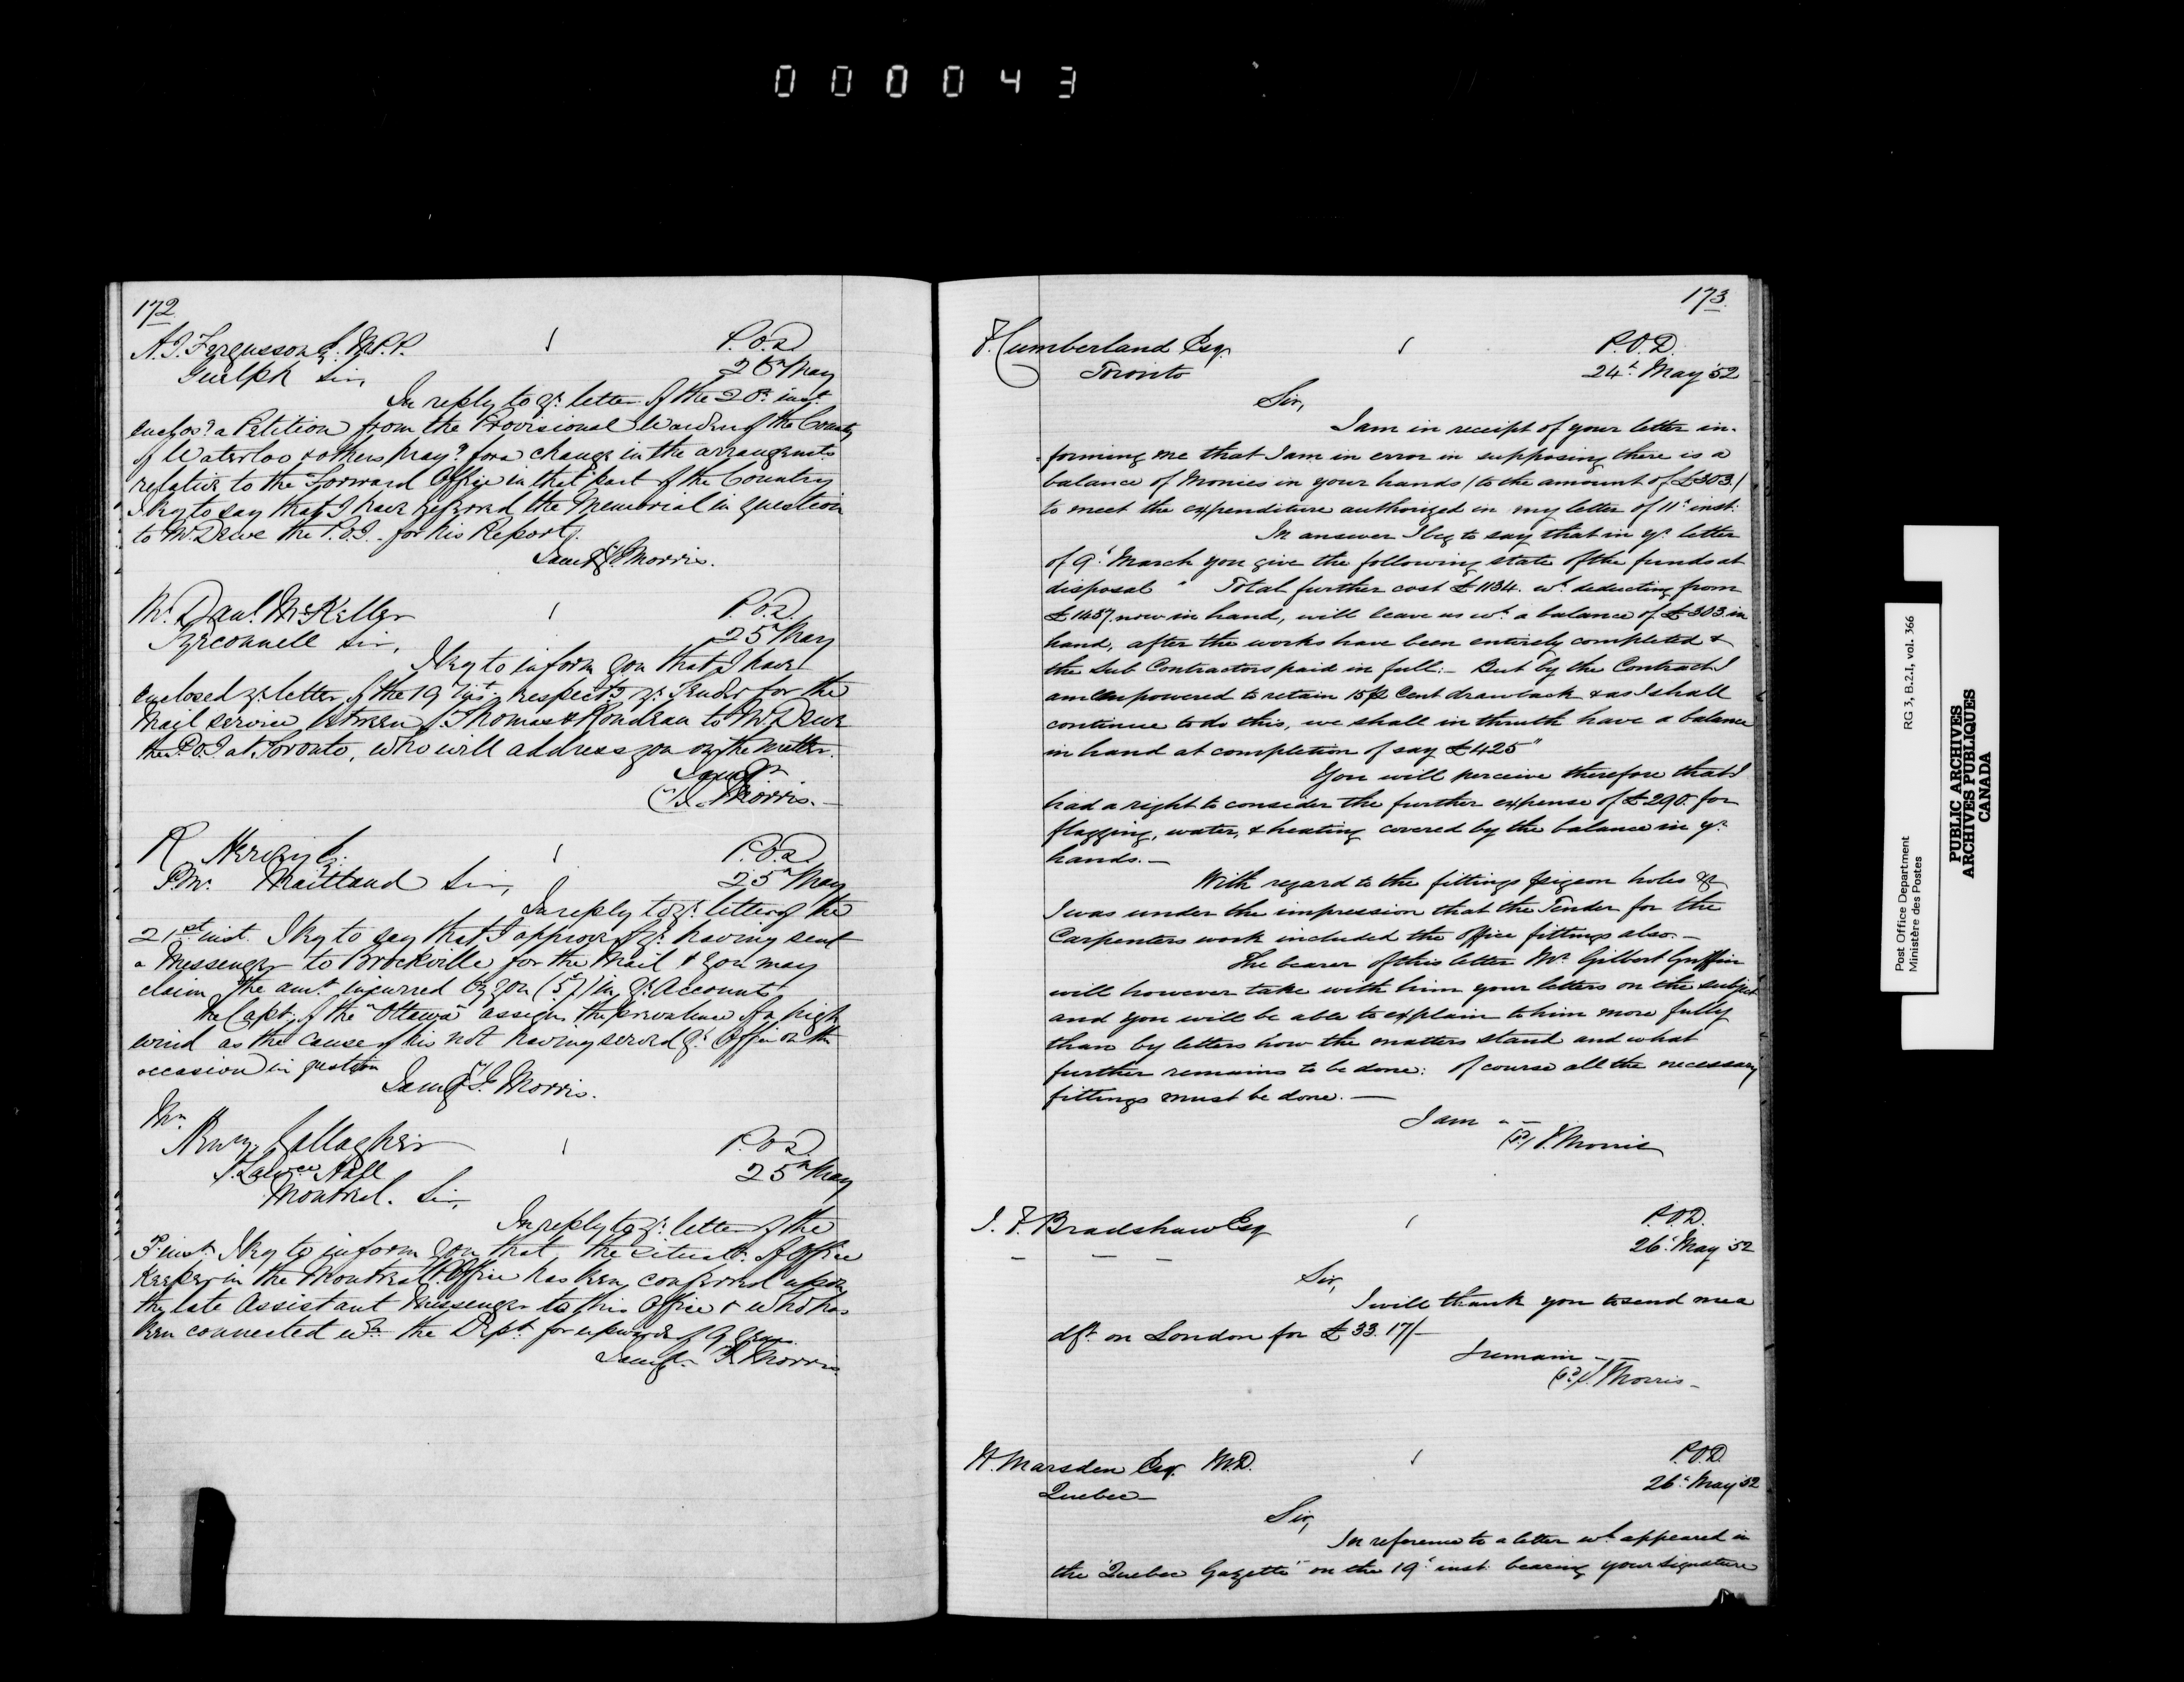 000043
172
A. J. Fergusson Esq. M.P.P. P.O.D.
Guelph Sir, 25th May
In reply to yr. letter of the 20th inst.
enclosg. a Petition from the Provisional Warden of the County
of Waterloo & others prayg. for a change in the arrangemts
relative to the Forward Office in that part of the Country
I beg to say that I have referred the Memorial in question
to Mr. Dewe the P.O.I. for his Report.
I am &c J. Morris.
Mr. Danl. McKellar P.O.D.
Tyrconnell Sir, 25th May
I beg to inform you that I have
enclosed yr. letter of the 19th inst. respectg yr. Tender for the
Mail service between St. Thomas & Rondeau to Mr. Dewe
the P.O.I. at Toronto, who will address you on the matter.
I am &c
J. Morris.
R Hervey Esq. P.O.D.
P.M. Maitland Sir, 25th May
In reply to yr. letter of the
21st inst. I beg to say that I approve of yr. having sent
a Messenger to Brockville for the Mail & you may
claim the amt. incurred by you (5/) in yr. Accounts
The Capt. of the "Ottawa" assigns the prevalence of a high
wind as the cause of his not having served yr. Office on the
occasion in question
I am &c J. Morris.
Mr.
Henry Gallagher P.O.D.
St. Lawce Hall 25th May
Montreal. Sir,
In reply to yr. letter of the
inst. I beg to inform you that the situatn. of Office
Keeper in the Montreal P. Office has been conferred upon
the late Assistant Messenger to this Office & who has
been connected wth the Dept. for upwards of 9 years.
I am &c J. Morris
173
F. Cumberland Esq. P.O.D.
Toronto 24th May 52
Sir,
I am in receipt of your letter in-
forming me that I am in error in supposing there is a
balance of Monies in your hands (to the amount of £303.)
to meet the expenditure authorized in my letter of 11th inst.
In answer I beg to say that in yr. letter
of 9th March you give the following state of the funds at
disposal " Total further cost £1134. wh. deducting from
£1437 now in hand, will leave us wh. a balance of £303 in
hand, after the works have been entirely completed &
the Sub Contractors paid in full:- But by the Contract I
am empowered to retain 15 p Cent drawback & as I shall
continue to do this, we shall in thruth have a balance
in hand at completion of say £425"
You will perceive therefore that I
had a right to consider the further expense of £290. for
flagging, water, & heating covered by the balance in yr.
hands.-
With regard to the fittings pigeon holes &c
I was under the impression that the Tender for the
Carpenters work included the office fittings also.-
The bearer of this letter Mr. Gilbert Griffin
will however take with him your letters on the subject
and you will be able to explain to him more fully
than by letters how the matters stand and what
further remains to be done: Of course all the necessary
fittings must be done.-
I am - -
(sd) J. Morris
J. F. Bradshaw Esq P.O.D.
26th May 52
Sir,
I will thank you to send me a
dft. on London for £33.17/-
I remain - -
(sd) J. Morris-
W. Marsden Esq. M.D. P.O.D.
Quebec- 26th May 52
Sir,
In reference to a letter wh. appeared in
the "Quebec Gazette" on the 19th inst. bearing your signature
Post Office Department RG 3, B.2.1, vol. 366
Ministère des Postes
PUBLIC ARCHIVES
ARCHIVES PUBLIQUES
CANADA